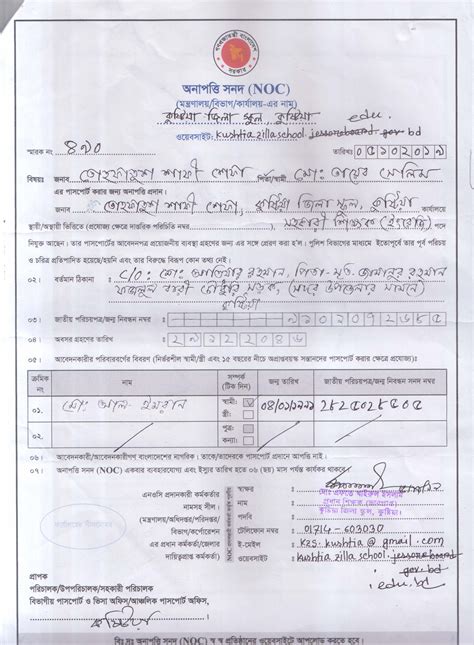 গণপ্রজাতন্ত্রী বাংলাদেশ সরকার
অনাপত্তি সনদ (NOC)
(মন্ত্রণালয়/বিভাগ/কার্যালয়-এর নাম)
কুষ্টিয়া জিলা স্কুল, কুষ্টিয়া
ওয়েবসাইট: kushtiazillaschool.jessoreboard.gov.bd
edu.
স্মারক নং: ৪৯০
তারিখঃ
বিষয়ঃ জনাব শাফী পিতা/স্বামী মোঃ তায়েব সেলিম
এর পাসপোর্ট করার জন্য অনাপত্তি প্রদান।
জনাব শাফী কুষ্টিয়া জিলা স্কুল, কুষ্টিয়া কার্যালয়ে
স্থায়ী/অস্থায়ী ভিত্তিতে (প্রযোজ্য ক্ষেত্রে সাপ্তরিক পরিচিতি নম্বর) সহকারী শিক্ষক (ইংরেজি) পদে
নিযুক্ত আছেন। তার পাসপোর্টের আবেদনপত্র প্রয়োজনীয় ব্যবস্থা গ্রহণের জন্য এর সঙ্গে প্রেরণ করা হ'ল। পুলিশ বিভাগের মাধ্যমে ইতোপূর্বে তার পূর্ব পরিচয়
ও চরিত্র প্রতিপাদিত হয়েছে/হয়নি এবং তার বিরুদ্ধে বিরূপ কোন তথ্য নেই।
০২। বর্তমান ঠিকানা : C/O: মোঃ আতিয়ার রহমান, পিতা- মৃত- রহমান
সড়ক, উপজেলার সামনে)
কুষ্টিয়া
০৩। জাতীয় পরিচয়পত্র/জন্ম নিবন্ধন নম্বর :
০৪। অবসর গ্রহণের তারিখ :
০৫। আবেদনকারীর পরিবারবর্গের বিবরণ (নির্ভরশীল স্বামী/স্ত্রী এবং ১৫ বছরের নীচে অপ্রাপ্তবয়স্ক সন্তানদের পাসপোর্ট করার ক্ষেত্রে প্রযোজ্য)ঃ
ক্রমিক নং নাম সম্পর্ক (টিক দিন) জন্ম তারিখ জাতীয় পরিচয়পত্র/জন্ম নিবন্ধন সনদ নম্বর
০১. মোঃ আল- ইমরান স্বামী: ✓
স্ত্রী:
০২. পুত্র:
কন্যা:
০৬। আবেদনকারী/আবেদনকারীগণ বাংলাদেশের নাগরিক। তাকে/তাদেরকে পাসপোর্ট প্রদানে আপত্তি নাই।
০৭। অনাপত্তি সনদ (NOC) একবার ব্যবহারযোগ্য এবং ইস্যুর তারিখ হতে ০৬ (ছয়) মাস পর্যন্ত কার্যকর থাকবে।
এনওসি প্রদানকারী কর্মকর্তার
নামসহ সীল।
(মন্ত্রণালয়/অধিদপ্তর/পরিদপ্তর/
বিভাগ/কর্পোরেশন
এর প্রধান কর্মকর্তা/জেলার
দায়িত্বপ্রাপ্ত কর্মকর্তা)
স্বাক্ষর :
নাম :
পদবি : প্রধান শিক্ষক
কুষ্টিয়া জিলা স্কুল, কুষ্টিয়া।
টেলিফোন নম্বর : 01714-603030
ই-মেইল : kzs.kushtia@gmail.com
ওয়েবসাইট : kushtiazillaschool.jessoreboard
gov.bd
edu.bd
প্রাপক
পরিচালক/উপপরিচালক/সহকারী পরিচালক
বিভাগীয় পাসপোর্ট ও ভিসা অফিস/আঞ্চলিক পাসপোর্ট অফিস,
কুষ্টিয়া
বিঃ দ্রঃ অনাপত্তি সনদ (NOC) স্ব স্ব প্রতিষ্ঠানের ওয়েবসাইটে আপলোড করতে হবে।